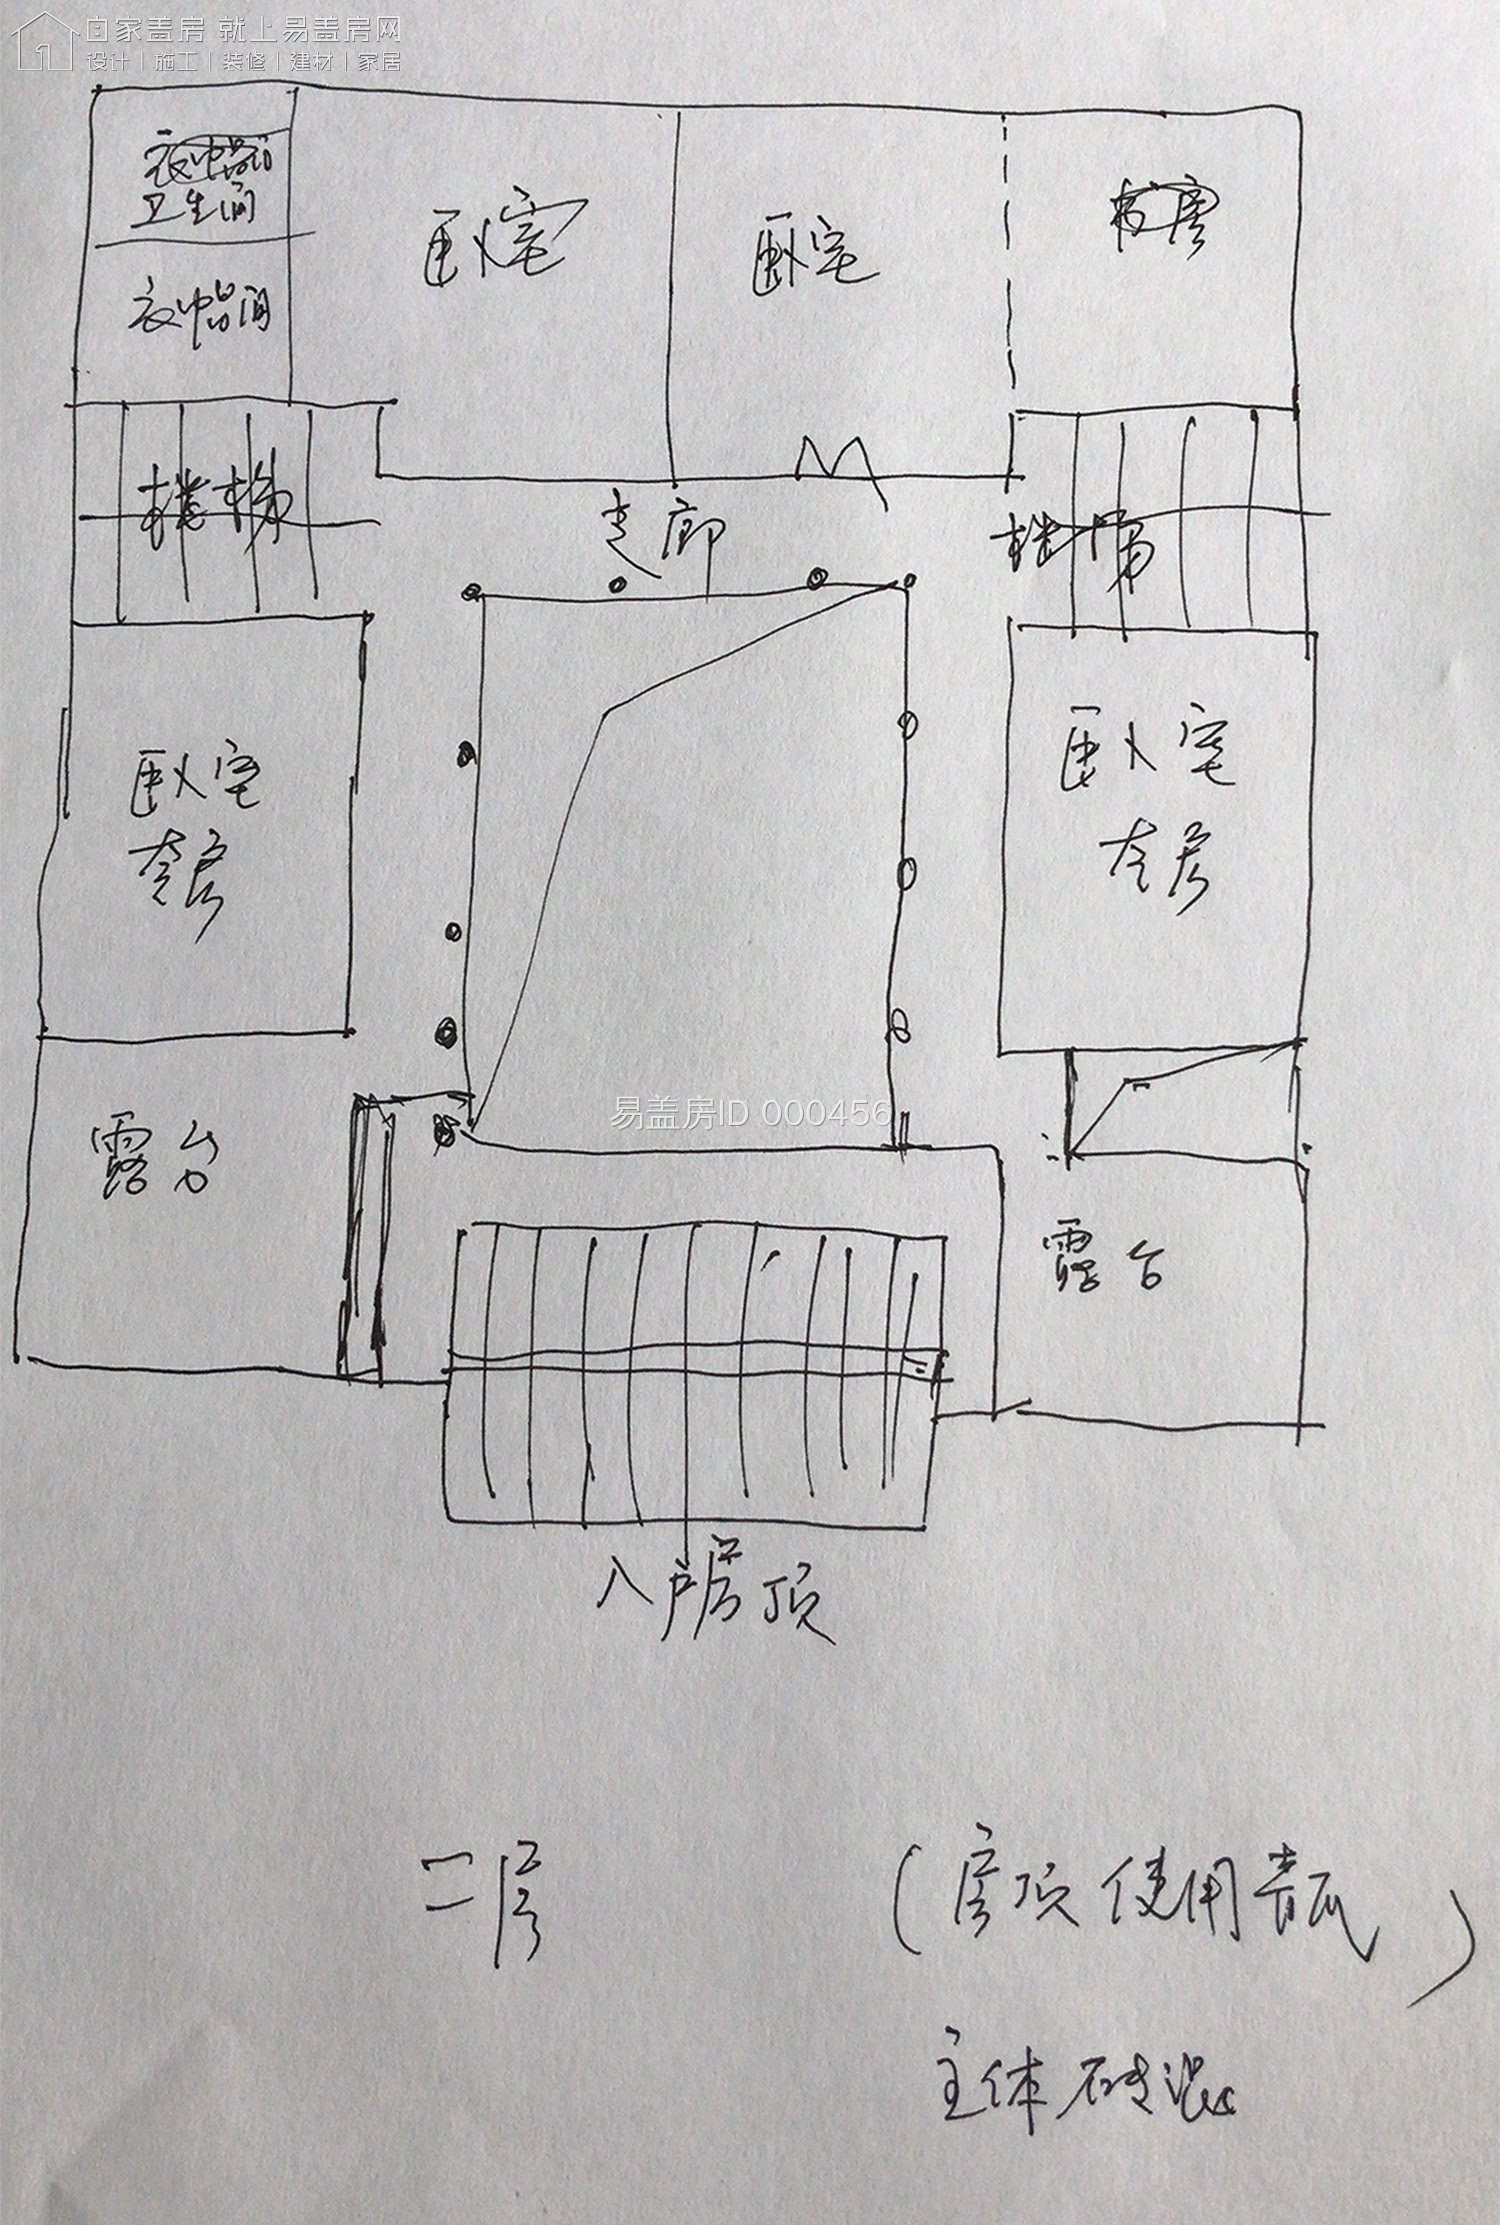 自家盖房 就上易盖房网
设计 | 施工 | 装修 | 建材 | 家居
卫生间
衣帽间
卧室
卧室
楼梯
走廊
楼梯
卧室
套房
卧室
套房
露台
易盖房ID 000456
露台
入户房顶
二层
(房顶使用青瓦)
主体砖混